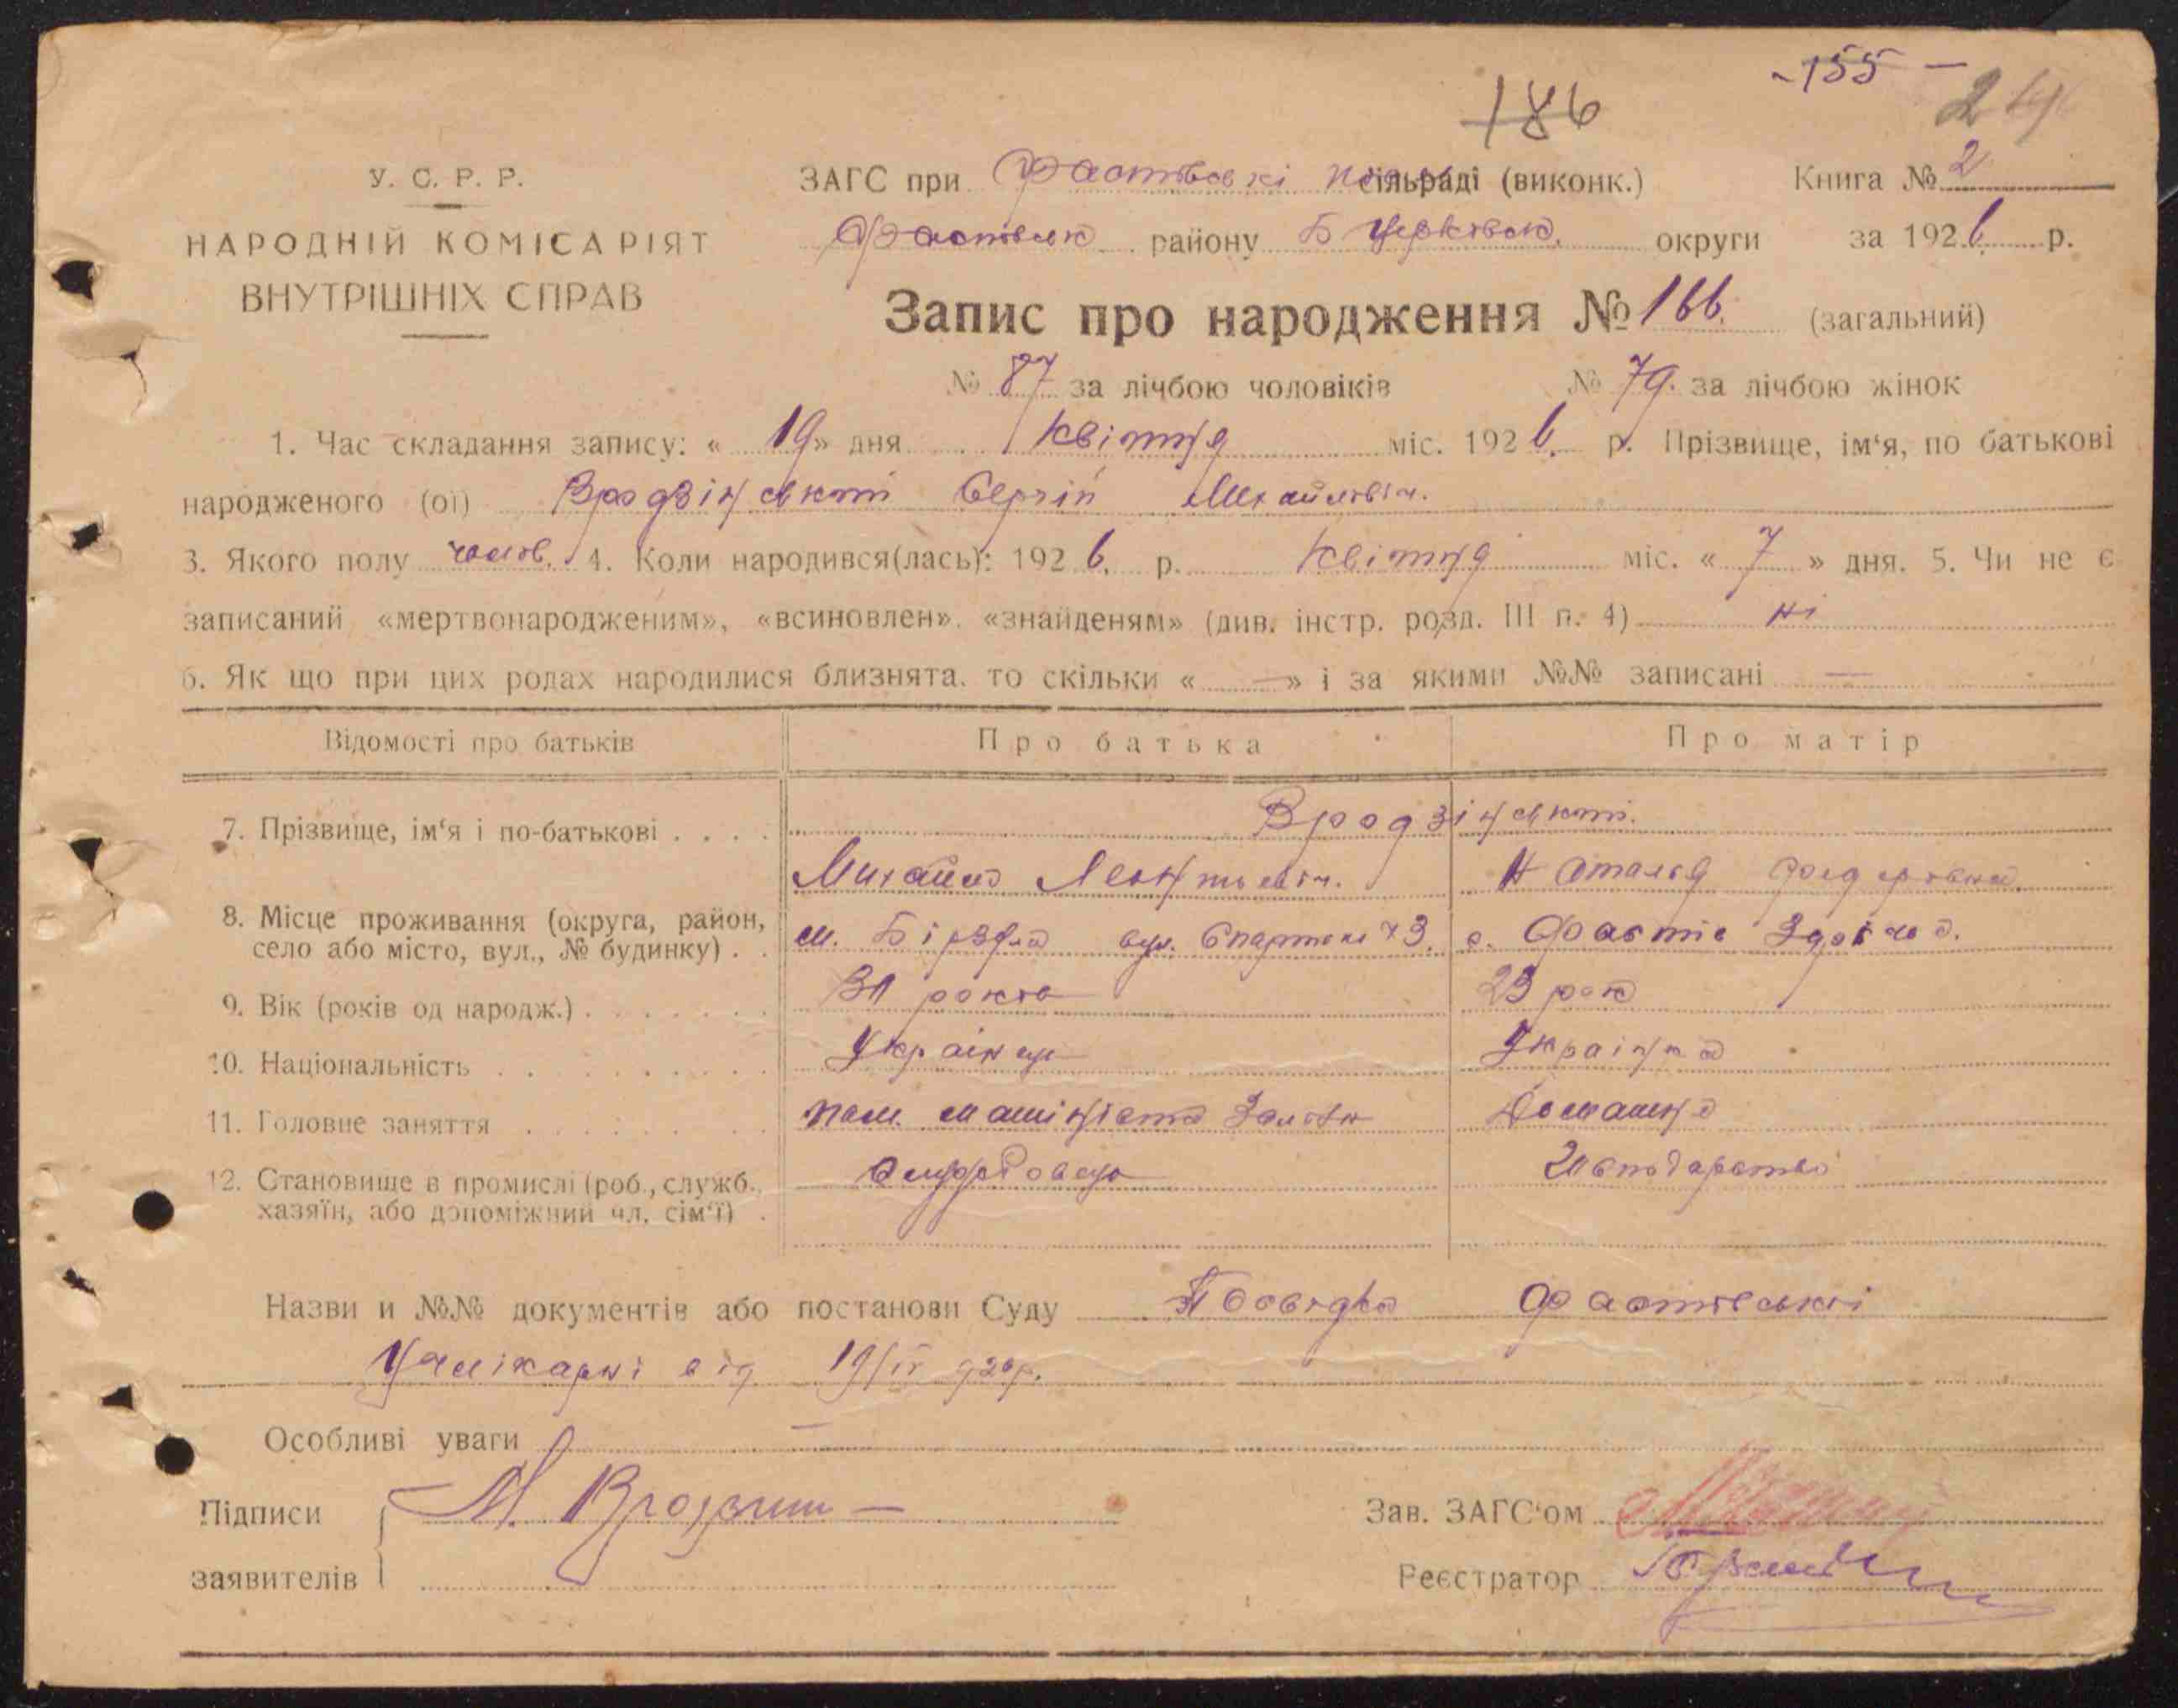 -155-
186
У. С. Р. Р.
НАРОДНІЙ КОМІСАРІЯТ
ВНУТРІШНІХ СПРАВ
ЗАГС при Фастівскі сільраді (виконк.) Книга № 2
Фастівськ району Б Церківськ. округи за 1926 р.
Запис про народження № 166. (загальний)
№ 87 за лічбою чоловіків № 79. за лічбою жінок
1. Час складання запису: « 19» дня Квітня міс. 1926. р. Прізвище, ім‘я, по батькові
народженого (ої) Вродзінський Сергій Михайлович.
3. Якого полу чолов. 4. Коли народився(лась): 1926. р. Квітня міс. « 7 » дня. 5. Чи не є
записаний «мертвонародженим», «всиновлен», «знайденям» (див. інстр. розд. III п. 4) ні
6. Як що при цих родах народилися близнята, то скільки « — » і за якими №№ записані —
Відомості про батьків Про батька Про матір
7. Прізвище, ім‘я і по-батькові . . . . Вродзінські.
Михайло Леонтьевіч. Наталья Федоровна.
8. Місце проживання (округа, район,
село або місто, вул., № будинку) . . м. Бірзула вул. Спартака 73. с. Фастів
9. Вік (років од народж.) . . . . . . . 31 рокив 23 рок
10. Національність . . . . . . . . . . Українец Українка
11. Головне заняття . . . . . . . . . пом. машініста Домашнє
12. Становище в промислі (роб., служб.,
хазяїн, або допоміжний чл. сім‘ї) . Службовець Господарство
Назви и №№ документів або постанови Суду Посвідка Фастівської
лікарні від 19/IV 926р.
Особливі уваги —
Підписи
заявителів
М.
Зав. ЗАГС‘ом
Реєстратор